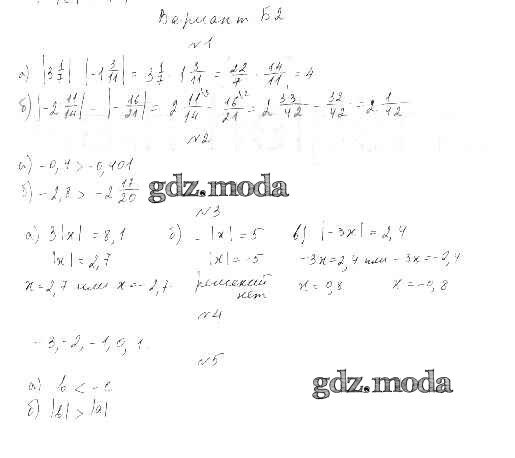 Вариант Б2
№1
а) |3 1/7| · |-1 3/11| = 3 1/7 · 1 3/11 = 22/7 · 14/11 = 4
б) |-2 11/14| - |-16/21| = 2 11/14 - 16/21 = 2 33/42 - 32/42 = 2 1/42
№2
а) -0,4 > -0,401
б) -2,8 > -2 17/20
gdz.moda
№3
а) 3|x| = 8,1 б) -|x| = 5 в) |-3x| = 2,4
|x| = 2,7 |x| = -5 -3x = 2,4 или -3x = -2,4
x = 2,7 или x = -2,7. решений нет x = 0,8 x = -0,8
№4
-3, -2, -1, 0, 1.
№5
а) b < -c
б) |b| > |a|
gdz.moda